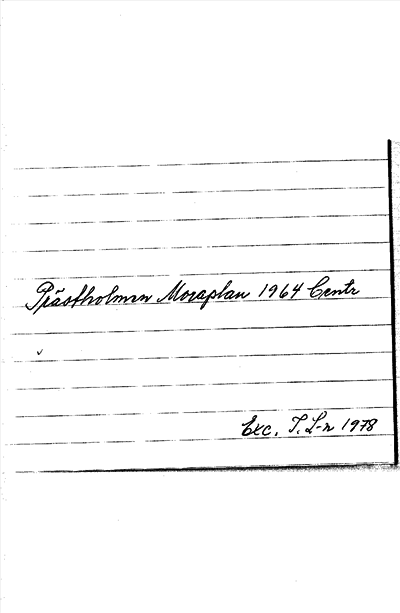 Prästholmen Moraplan 1964 Centr
Exc. T. L-n 1978